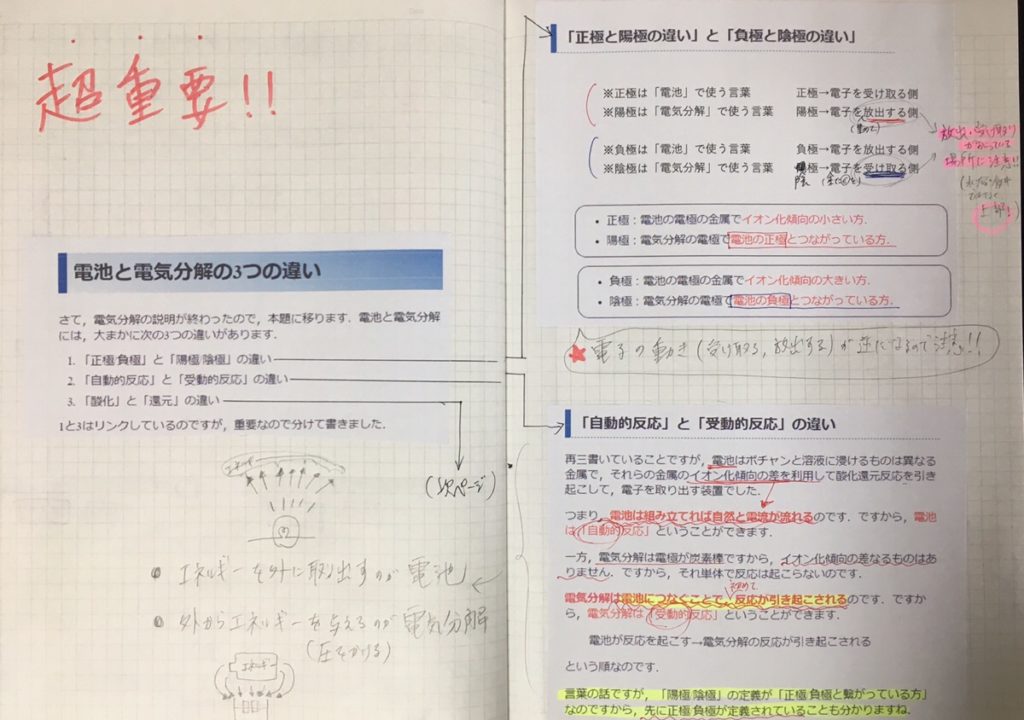 超重要!!
電池と電気分解の3つの違い
さて，電気分解の説明が終わったので，本題に移ります．電池と電気分解
には，大まかに次の3つの違いがあります．
1. 「正極 負極」と「陽極 陰極」の違い
2. 「自動的反応」と「受動的反応」の違い
3. 「酸化」と「還元」の違い
1と3はリンクしているのですが，重要なので分けて書きました．
(次ページ)
エネルギー
エネルギーを外に取り出すのが電池
外からエネルギーを与えるのが電気分解
エネルギー
「正極と陽極の違い」と「負極と陰極の違い」
※正極は「電池」で使う言葉 正極→電子を受け取る側
※陽極は「電気分解」で使う言葉 陽極→電子を放出する側
※負極は「電池」で使う言葉 負極→電子を放出する側
※陰極は「電気分解」で使う言葉 極→電子を受け取る側
陰
場所に注意!!
上部!
• 正極：電池の電極の金属でイオン化傾向の小さい方．
• 陽極：電気分解の電極で電池の正極とつながっている方．
• 負極：電池の電極の金属でイオン化傾向の大きい方．
• 陰極：電気分解の電極で電池の負極とつながっている方．
★電子の動き(受け取る，放出する)が逆になるので注意!!
「自動的反応」と「受動的反応」の違い
再三書いていることですが，電池はボチャンと溶液に浸けるものは異なる
金属で，それらの金属のイオン化傾向の差を利用して酸化還元反応を引き
起こして，電子を取り出す装置でした．
つまり，電池は組み立てれば自然と電流が流れるのです．ですから，電池
は「自動的反応」ということができます．
一方，電気分解は電極が炭素棒ですから，イオン化傾向の差なるものはあ
りません．ですから，それ単体で反応は起こらないのです．
初めて
電気分解は電池につなぐことで，反応が引き起こされるのです．ですか
ら，電気分解は「受動的反応」ということができます．
電池が反応を起こす→電気分解の反応が引き起こされる
という順なのです．
言葉の話ですが，「陽極 陰極」の定義が「正極 負極と繋がっている方」
なのですから，先に正極 負極が定義されていることも分かりますね．